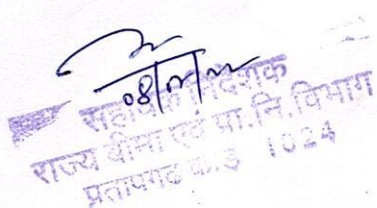 सहायक निदेशक
राज्य बीमा एवं प्रा.नि.विभाग
प्रतापगढ कोड 1024